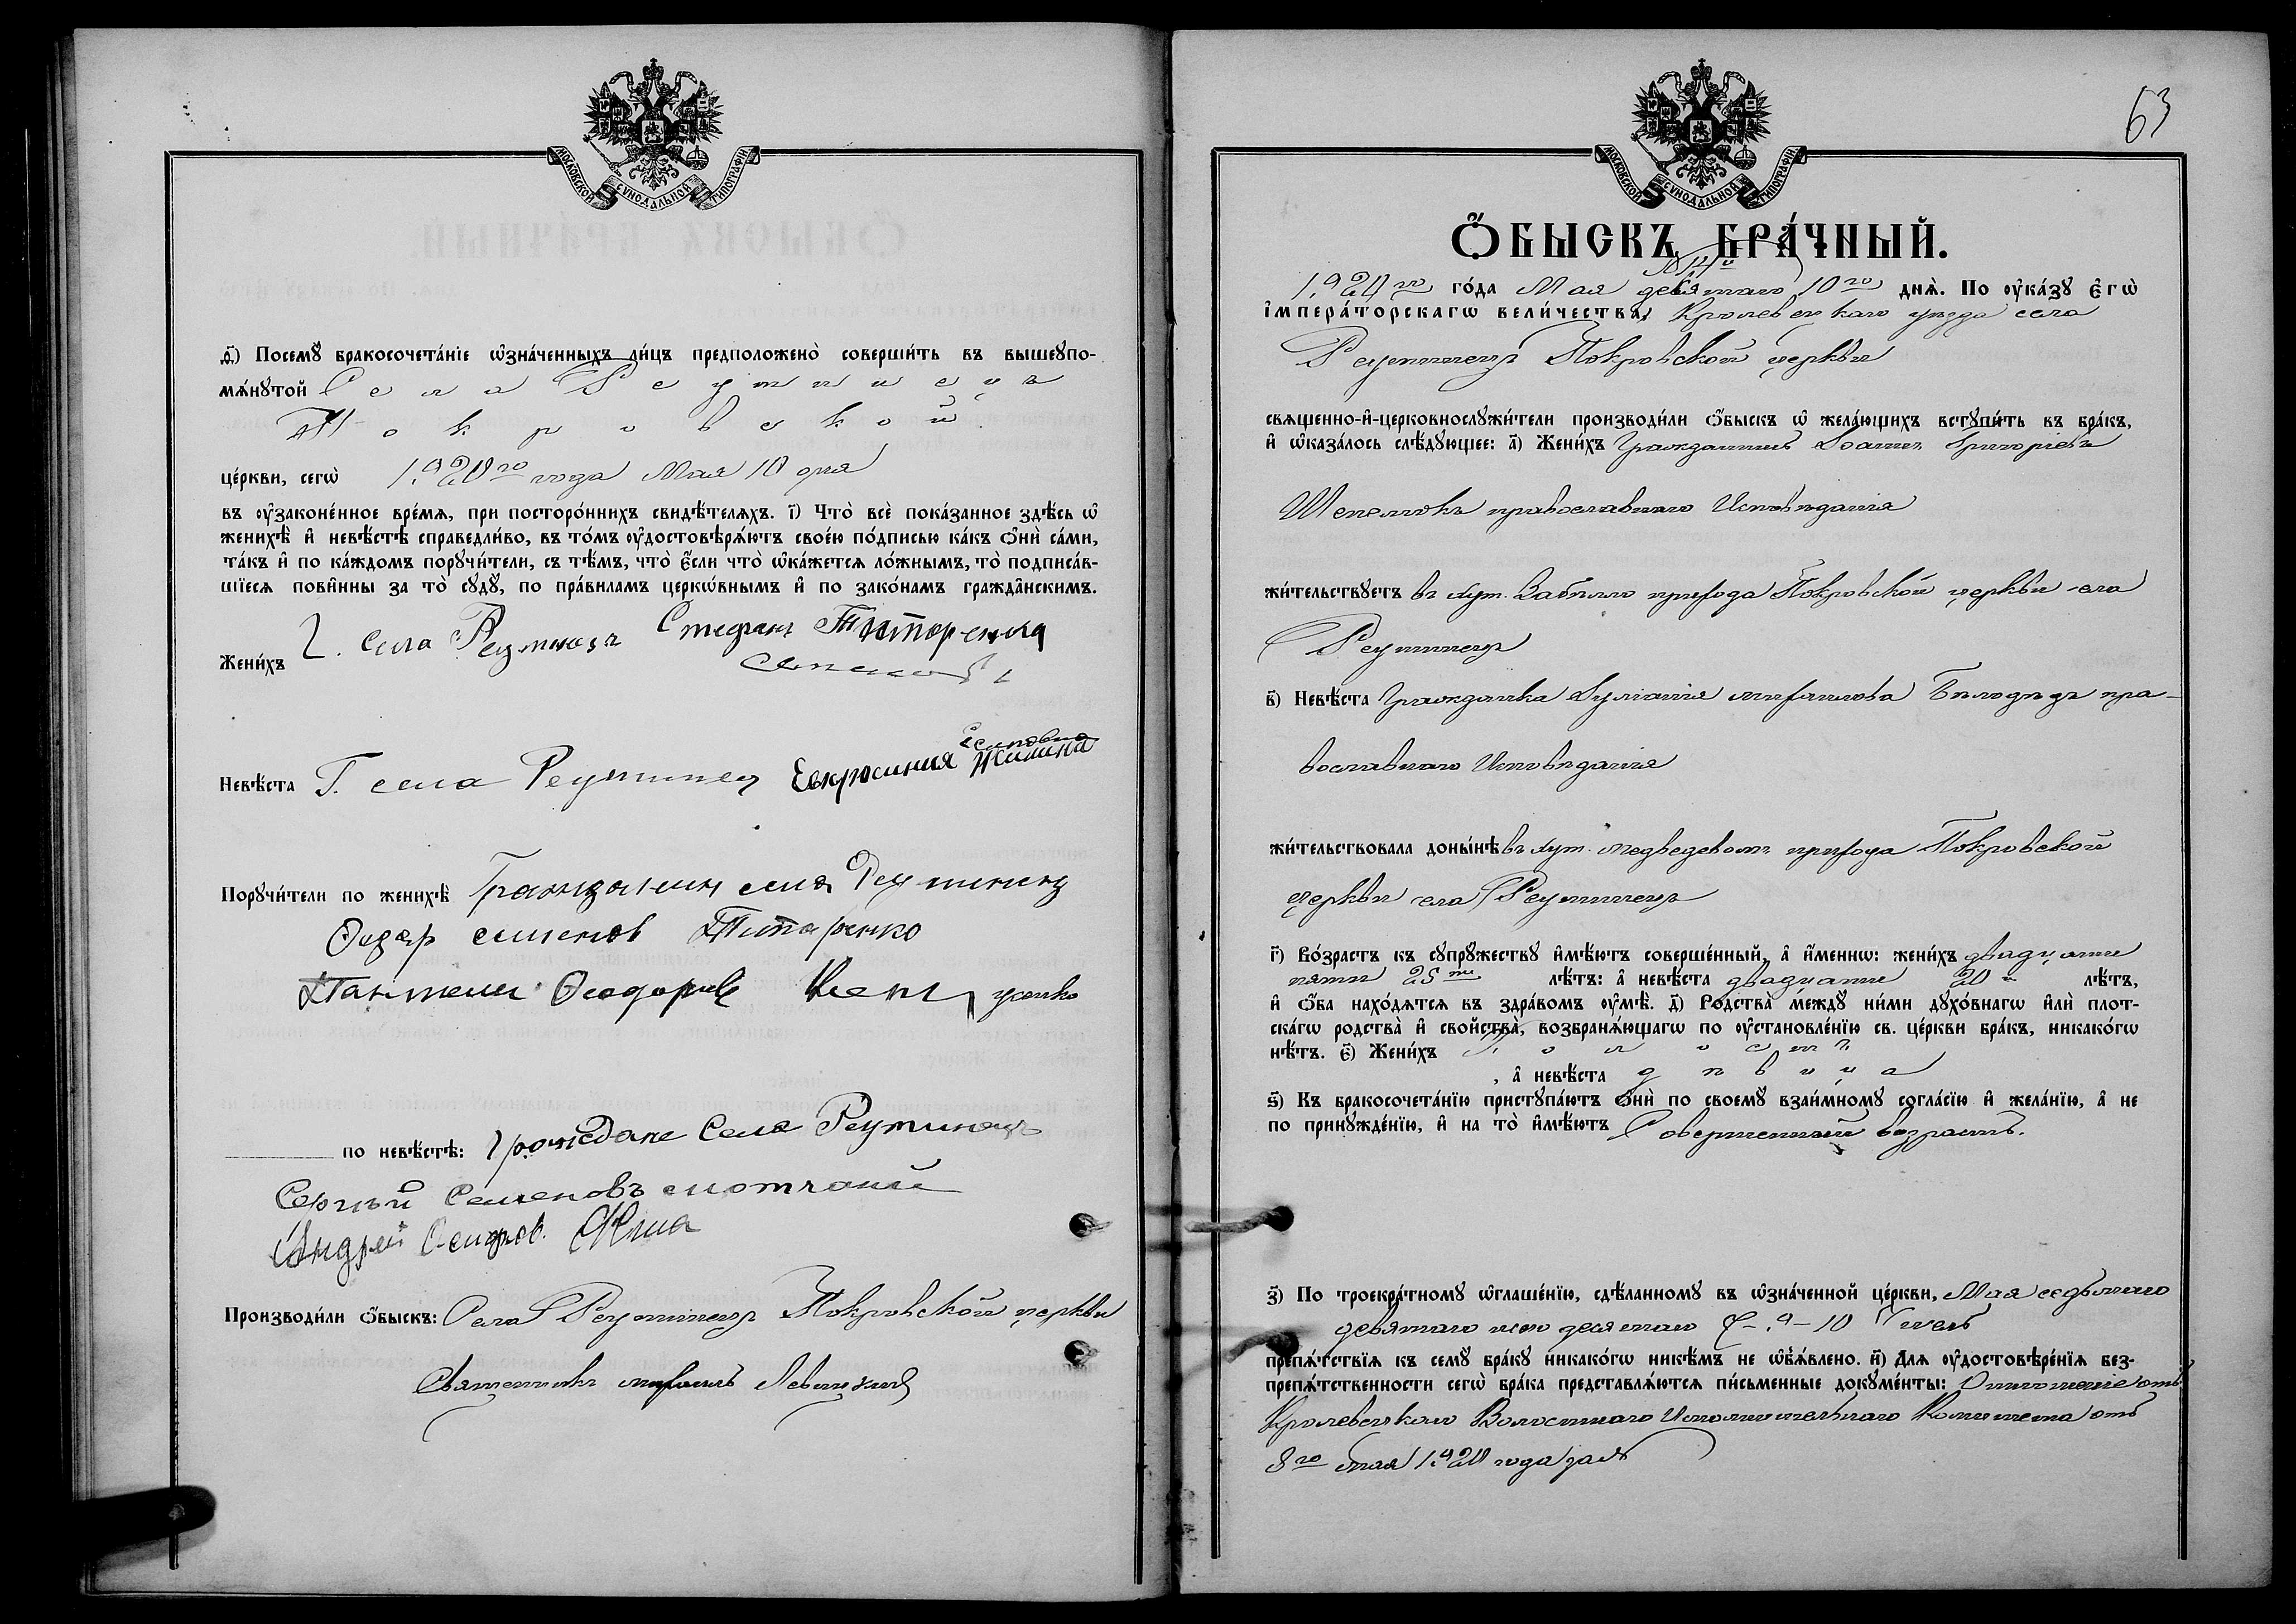 МОСКОВСКОЙ СѴНОДАЛЬНОЙ ТИПОГРАФІИ
ѳ҃) Посемꙋ̀ бракосочета́нїе ѡ҆зна́ченныхъ ли́цъ предположено̀ соверши́ть въ вышеꙋпо-
мѧ́нꙋтой Села Реутинецъ
Покровской
це́ркви, сегѡ̀ 1920го года Мая 10 дня
въ ᲂу҆законе́нное вре́мѧ, при посторо́ннихъ свидѣ́телѧхъ. і҃) Что̀ всѐ пока́занное здѣ́сь ѡ҆
женихѣ̀ и҆ невѣ́стѣ справедли́во, въ то́мъ ᲂу҆достовѣрѧ́ютъ свое́ю по́дписью ка́къ ѻ҆нѝ са́ми,
та́къ и҆ по ка́ждомъ порꙋчи́тели, съ тѣ́мъ, что̀ є҆́сли что̀ ѡ҆ка́жетсѧ ло́жнымъ, то̀ подписа́в-
шїесѧ пови́нны за то̀ сꙋдꙋ̀, по пра́виламъ церкѡ́внымъ и҆ по зако́намъ гражда́нскимъ.
Жени́хъ Г. села Реутинецъ Стефанъ Титоренко
Невѣ́ста Г. села Реутинец Евкросиния Жилина
Порꙋчи́тели по женихѣ̀ Гражданин села Реутинец
Федар семенов Титаренко
Пантели Феодоровъ
по невѣ́стѣ: Граждане Села Реутинецъ
Сергѣй Семеновъ
Андрей
Производи́ли ѻ҆́быскъ: Села Реутинецъ Покровской церкви
Священникъ Михаилъ Левицкий
63
МОСКОВСКОЙ СѴНОДАЛЬНОЙ ТИПОГРАФІИ
Ѻ҆́БЫСКЪ БРА́ЧНЫЙ.
1920го го́да Мая 10го днѧ̀. По ᲂу҆ка́зꙋ є҆гѡ̀
і҆мпера́торскагѡ вели́чества, Кролевецкаго уезда села
Реутинецъ Покровской церкви
свѧщенно-и҆-церковнослꙋжи́тели производи́ли ѻ҆́быскъ ѡ҆ жела́ющихъ встꙋпи́ть въ бра́къ,
и҆ ѡ҆каза́лось слѣ́дꙋющее: а҃) Жени́хъ Гражданинъ Іоаннъ Григоріевъ
Шепелюкъ православнаго Исповѣданія
жи́тельствꙋетъ въ хут. прихода Покровской церкви села
Реутинецъ
в҃) Невѣ́ста Гражданка Іуліанія Михаилова Бѣлодѣдъ пра-
вославнаго Исповѣданія
жи́тельствовала доны́нѣ въ хут. Медведевомъ прихода Покровской
церкви села Реутинецъ
г҃) Во́зрастъ къ сꙋпрꙋ́жествꙋ и҆мѣ́ютъ соверше́нный, а҆ и҆́меннѡ: жени́хъ двадцати
пяти 25ти лѣ́тъ: а҆ невѣ́ста двадцати 20и лѣ́тъ,
и҆ ѻ҆́ба нахо́дѧтсѧ въ здра́вомъ ᲂу҆мѣ̀. д҃) Родства̀ ме́ждꙋ ни́ми дꙋхо́внагѡ и҆лѝ плот-
ска́гѡ родства̀ и҆ свойства̀, возбранѧ́ющагѡ по ᲂу҆становле́нїю св. це́ркви бра́къ, никако́гѡ
нѣ́тъ. є҃) Жени́хъ Холостъ
, а҆ невѣ́ста дѣвица
ѕ҃) Къ бракосочета́нїю пристꙋпа́ютъ ѻ҆нѝ по своемꙋ̀ взаи́мномꙋ согла́сїю и҆ жела́нїю, а҆ не
по принꙋжде́нїю, и҆ на то̀ и҆мѣ́ютъ Совершенный возрастъ.
з҃) По троекра́тномꙋ ѡ҆глаше́нїю, сдѣ́ланномꙋ въ ѡ҆зна́ченной це́ркви, Мая седьмаго
девятаго и десятаго 7-9-10 чиселъ
препѧ́тствїѧ къ семꙋ̀ бра́кꙋ никако́гѡ никѣ́мъ не ѡ҆б̾ѧ́влено. и҃) Длѧ ᲂу҆достовѣре́нїѧ без-
препѧ́тственности сегѡ̀ бра́ка представлѧ́ютсѧ пи́сьменные докꙋме́нты: Отношеніе отъ
Кролевецкаго Волостнаго Исполнительнаго Комитета отъ
8го мая 1920 года за №